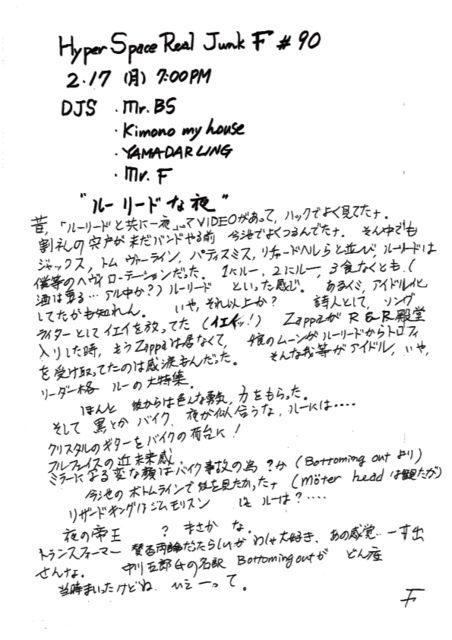 Hyper Space Real Junk F #90
2.17 (月) 7:00PM
DJS ・Mr. BS
・Kimono my house
・YAMADARLING
・Mr. F
"ルーリードな夜"
昔, 「ルーリードと共に一夜」ってVIDEOがあって, ハックでよく見てたナ.
割礼の宍戸がまだバンドやる前 今池でよくつるんでた. そん中でも
ジャックス, トム ヴァーライン, パティスミス, リチャードヘルらと並び, ルーリードは
僕等のヘヴィローテーションだった. 1にルー, 2にルー, 3食なくとも. (
酒は要る… アル中か?) ルーリード といった感じ. あるイミ, アイドル化
してたかも知れん. いや, それ以上か? 詩人として, ソング
ライターとしてイエイを放ってた (イエイッ!) ZappaがR&R殿堂
入りした時, もうZappaは居なくて, 娘のムーンがルーリードからトロフィ
を受け取ってたのは感涙もんだった. そんな我等がアイドル, いや,
リーダー格 ルーの大特集.
ほんと 彼からは色んな勇気, 力をもらった.
そして 黒とか バイク, 夜が似合うな, ルーには….
クリスタルのギターをバイクの荷台に!
フルフェイスの近未来感
ミラーによる変な顔はバイク事故の為?か (Bottoming out より)
今池のボトムラインで 見たかったナ (Möter head は観たが)
リザードキングはジム モリスン ルーは?….
夜の帝王 ? まさか な.
トランスフォーマー 賛否両論だたらしいが わしゃ大好き, あの感覚 一す出
せんな. 中川五郎 の名訳 Bottoming out が どん底
当時まいったけどね, ひえーって.
F